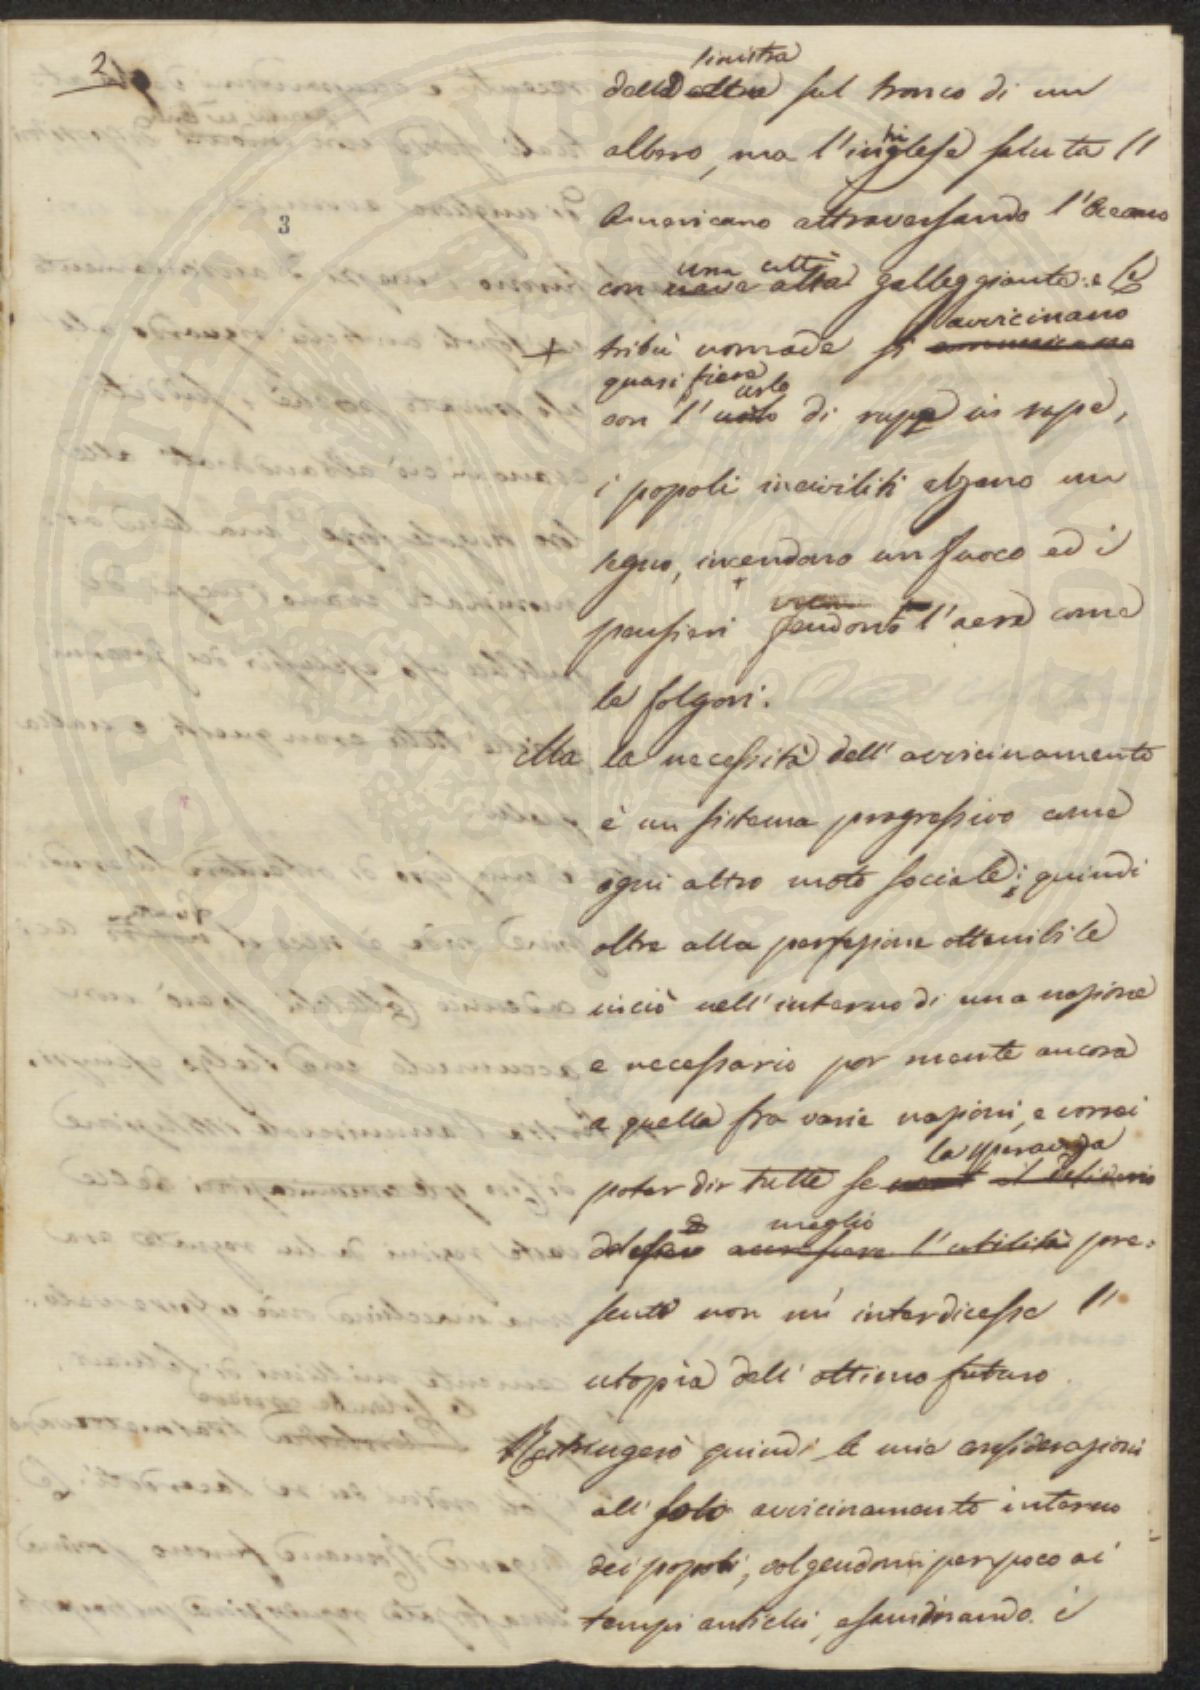 2
3
sinistra
dello altro sul tronco di un
albero, ma l'inglese saluta l'
Americano attraversando l'Oceano
una città
con nave alta galleggiante: e le
avvicinano
+ tribù nomade si comunicano
quasi fiere
urlo
con l' di rupe in rupe,
i popoli incivili alzano un
segno, incendono un fuoco ed i
pensieri fendono l'aere come
le folgori.
Ma la necessità dell'avvicinamento
è un sistema progressivo come
ogni altro moto sociale; quindi
oltre alla perfezione ottenibile
in ciò nell'interno di una nazione
e necessario por mente ancora
a quella fra varie nazioni, e vorrei
la speranza
poter dir tutte se il desiderio
meglio
del l'utilità pre:
sente non mi interdicesse l'
utopia dell'ottimo futuro.
Restringerò quindi le mie considerazioni
all' solo avvicinamento interno
dei popoli, volgendomi per poco ai
tempi antichi, esaminando i